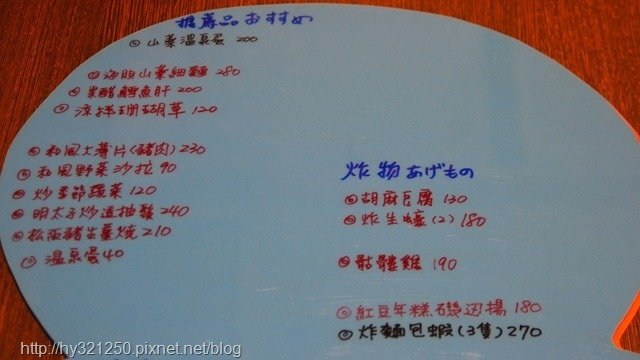 推薦品 おすすめ
山藥溫泉蛋 200
海膽山藥細麵 280
柴醋鱈魚肝 200
涼拌珊瑚草 120
和風大薄片(豬肉) 230
和風野菜沙拉 90
炒季節蔬菜 120
明太子炒透抽鬚 240
松阪豬生薑燒 210
溫泉蛋 40
炸物 あげもの
胡麻豆腐 130
炸生蠔(2) 180
骷髏雞 190
紅豆年糕磯辺揚 180
炸麵包蝦(3隻) 270
http://hy321250.pixnet.net/blog